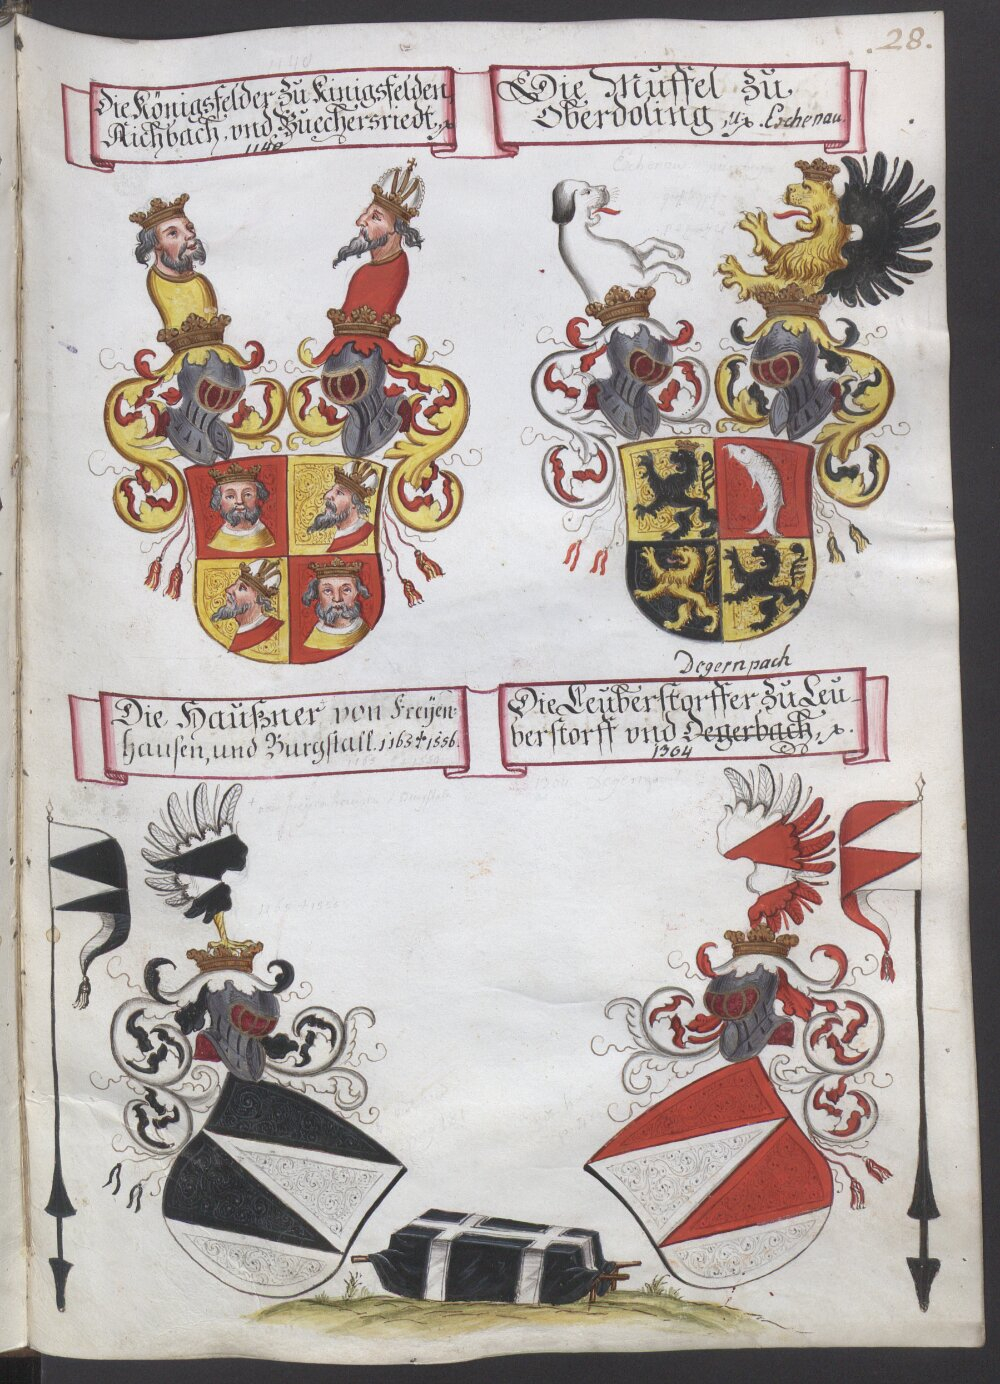 28.
Die Königsfelder Zu Kinigsfelden,
Aichbach, vnd Buechersriedt,
1140
Die Muffel Zu
Oberdoling, Eschenau.
Die Haußner von Freÿen-
hausen, und Burgstall. 1163 † 1556.
Degernpach
Die Leuberstorffer Zu Leu-
berstorff vnd Degerbach,
1304